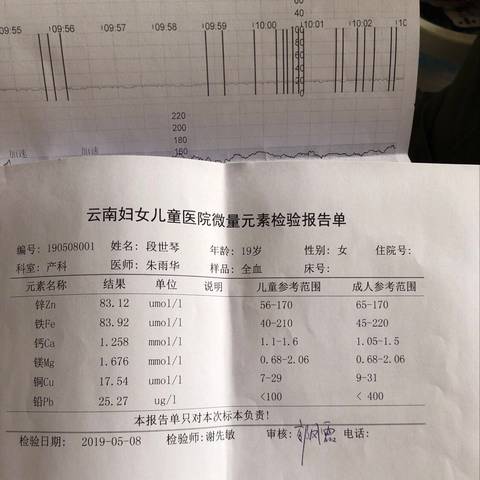 09:55 09:56 09:59 10:00 10:01 10:02
60
80
60
40
20
0
220
200
180
160
加速 加速
云南妇女儿童医院微量元素检验报告单
编号: 190508001 姓名: 段世琴 年龄: 19岁 性别: 女 住院号:
科室: 产科 医师: 朱雨华 样品: 全血 床号:
元素名称 结果 单位 说明 儿童参考范围 成人参考范围
锌Zn 83.12 umol/l 56-170 65-170
铁Fe 83.92 umol/l 40-210 45-220
钙Ca 1.258 mmol/l 1.1-1.6 1.05-1.5
镁Mg 1.676 mmol/l 0.68-2.06 0.68-2.06
铜Cu 17.54 umol/l 7-29 9-31
铅Pb 25.27 ug/l <100 < 400
本报告单只对本次标本负责!
检验日期: 2019-05-08 检验师:谢先敏 审核: 电话: